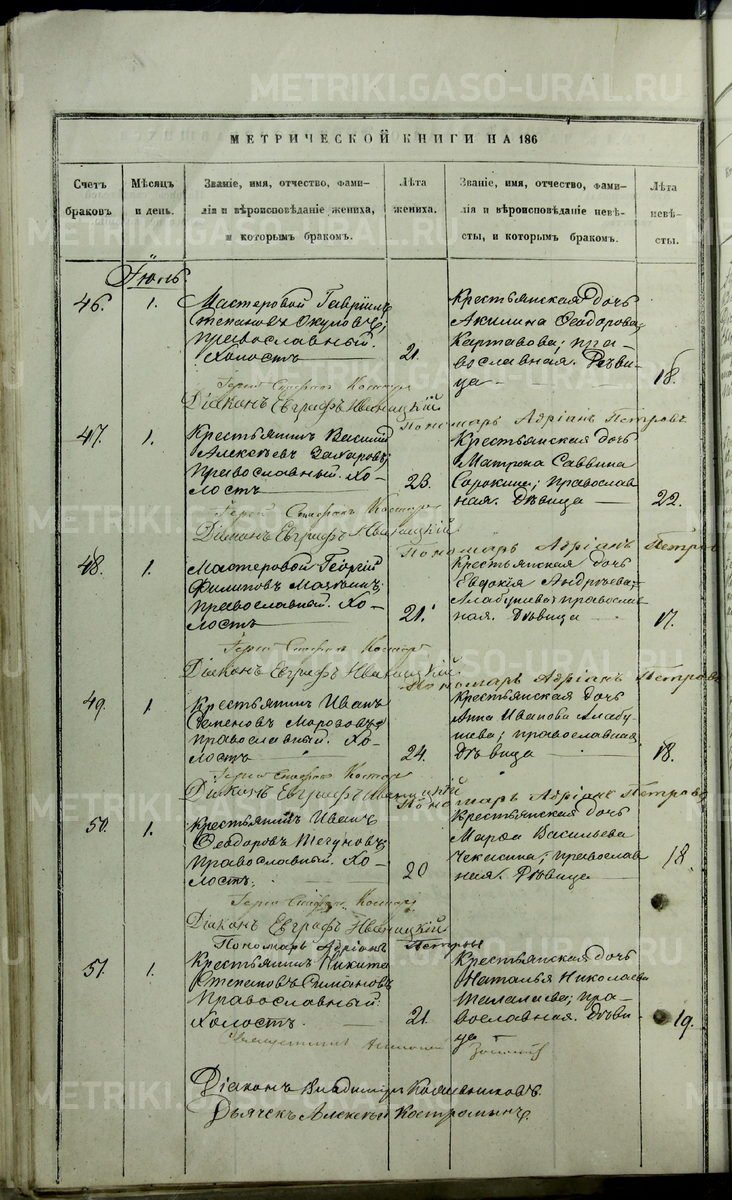 METRIKI.GASO-URAL.RU
МЕТРИЧЕСКОЙ КНИГИ НА 186
Счетъ браковъ.
Мѣсяцъ и день.
Званіе, имя, отчество, фами-
лія и вѣроисповѣданіе жениха,
и которымъ бракомъ.
Лѣта жениха.
Званіе, имя, отчество, фами-
лія и вѣроисповѣданіе невѣ-
сты, и которымъ бракомъ.
Лѣта невѣ-
сты.
Іюль.
46. 1.
Мастеровой Гавріилъ
Степановъ Окуловъ;
православный.
Холостъ
21.
Крестьянская дочь
Акилина Ѳеодорова
Картавова; пра-
вославная. Дѣви-
ца
18.
Іерей Стефанъ
Діаконъ Евграфъ
Пономарь Адріанъ Петровъ
47. 1.
Крестьянинъ Василій
Алексѣевъ Захаровъ;
православный. Хо-
лостъ
23.
Крестьянская дочь
Матрона Саввина
Сорокина; православ
ная. Дѣвица
22.
Іерей Стефанъ
Діаконъ Евграфъ
Пономарь Адріанъ Петров
48. 1.
Мастеровой Георгій
Филиповъ
православный. Хо-
лостъ
21.
Крестьянская дочь
Евдокія Андрѣева
Алабушева; православ
ная. Дѣвица
17.
Іерей Стефанъ
Діаконъ Евграфъ
Пономарь Адріанъ Петрова
49. 1
Крестьянинъ Иванъ
Семеновъ Морозовъ;
православный. Хо-
лостъ
24.
Крестьянская дочь
Анна Иванова Алабу-
шева; православная.
Дѣвица
18.
Іерей Стефанъ
Діаконъ Евграфъ
Пономарь Адріанъ Петровъ
50. 1.
Крестьянинъ Иванъ
Ѳеодоровъ
православный. Хо-
лостъ.
20
Крестьянская дочь
Марѳа Васильева
Чекасина; православ
ная. Дѣвица
18.
Іерей Стефанъ
Діаконъ Евграфъ
Пономарь Адріанъ Петровъ
51. 1.
Крестьянинъ Никита
Степановъ Симановъ
православный.
Холостъ.
21.
Крестьянская дочь
Наталья Николаева
Талалаева; пра-
вославная. Дѣви
ца
19.
Священникъ
Діаконъ Владиміръ
Дьячекъ Алексѣй Костроминъ.